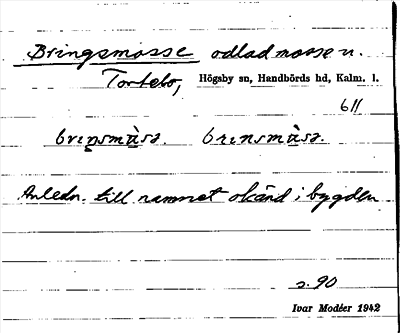 Bringsmosse odlad mosse u.
Tortebo, Högsby sn, Handbörds hd, Kalm. l.
611
brıŋsmɑ̀sə. brınsmɑ̀sə.
Anledn. till namnet okänd i bygden
s. 90
Ivar Modéer 1942